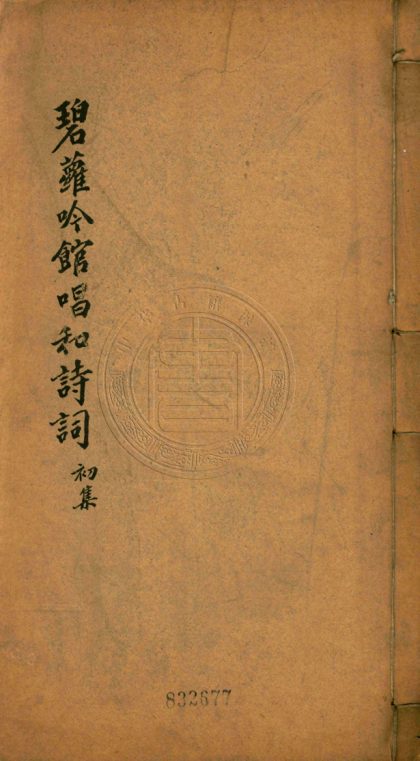 碧蘿吟館唱和詩詞
初集
832677